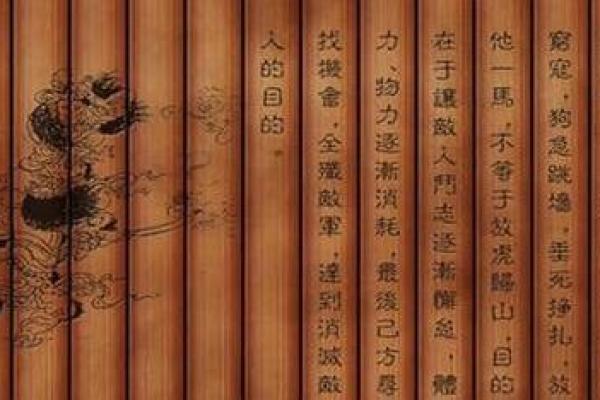 窮寇，狗急跳墻，垂死掙扎，放
他一馬，不等于放虎歸山，目的
在于讓敵人鬥志逐漸懈怠，體
力、物力逐漸消耗，最後己方尋
找機會，全殲敵軍，達到消滅敵
人的目的。